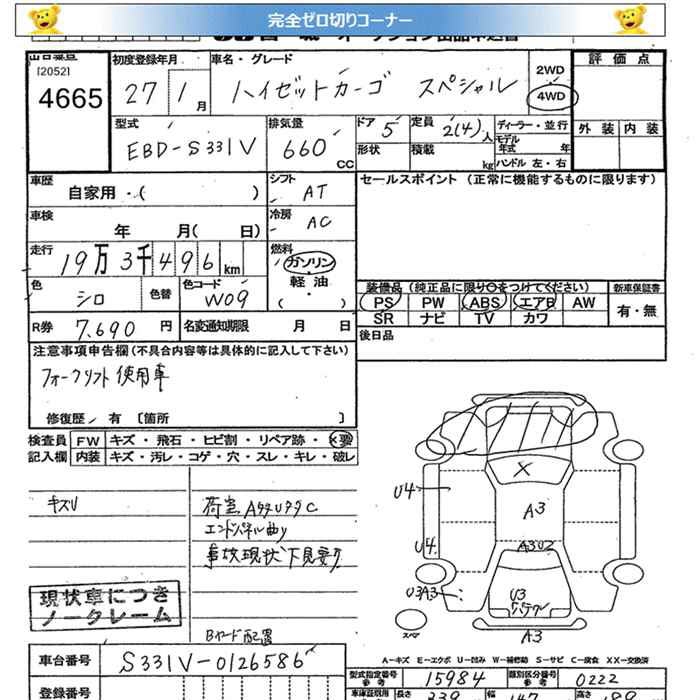 完全ゼロ切りコーナー
[2052]
4665
初度登録年月
27 1 月
車名・グレード
ハイゼットカーゴ スペシャル
2WD
4WD
評価点
外装 内装
型式
EBD-S331V
排気量
660 CC
ドア 5
形状
定員 2(4) 人
積載 kg
ディーラー・並行
モデル年式 年
ハンドル 左・右
車歴
自家用・( )
シフト AT
セールスポイント (正常に機能するものに限ります)
車検
年 月( 日)
冷房 AC
走行
19万3千496km
燃料
ガソリン
軽油
( )
色 シロ
色替
色コード W09
装備品(純正品に限り○をつけてください)
新車保証書
PS PW ABS エアB AW
有・無
SR ナビ TV カワ
R券 7,690 円
名変通知期限 月 日
後日品
注意事項申告欄(不具合内容等は具体的に記入して下さい)
フォークリフト使用車
修復歴/有 [箇所 ]
検査員 FW キズ・飛石・ヒビ割・リペア跡・X要
記入欄 内装 キズ・汚レ・コゲ・穴・スレ・キレ・破レ
キズU
荷室
エンドパネル曲り
事故現状下見要ク
現状車につき
ノークレーム
Bヤード配置
X
U4
A3
U4
A3U2
U3A3
U3
スペア
A3
A-キズ E-エクボ U-凹み W-補修跡 S-サビ C-腐食 XX-交換済
車台番号 S331V-0126586
型式指定番号 15984
類別区分番号 0222
登録番号
長さ 339 幅 147 高さ 189